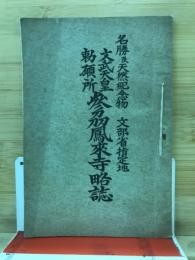 名勝及天然紀念物 文部省指定地
文武天皇
勅願所
參州鳳來寺略誌